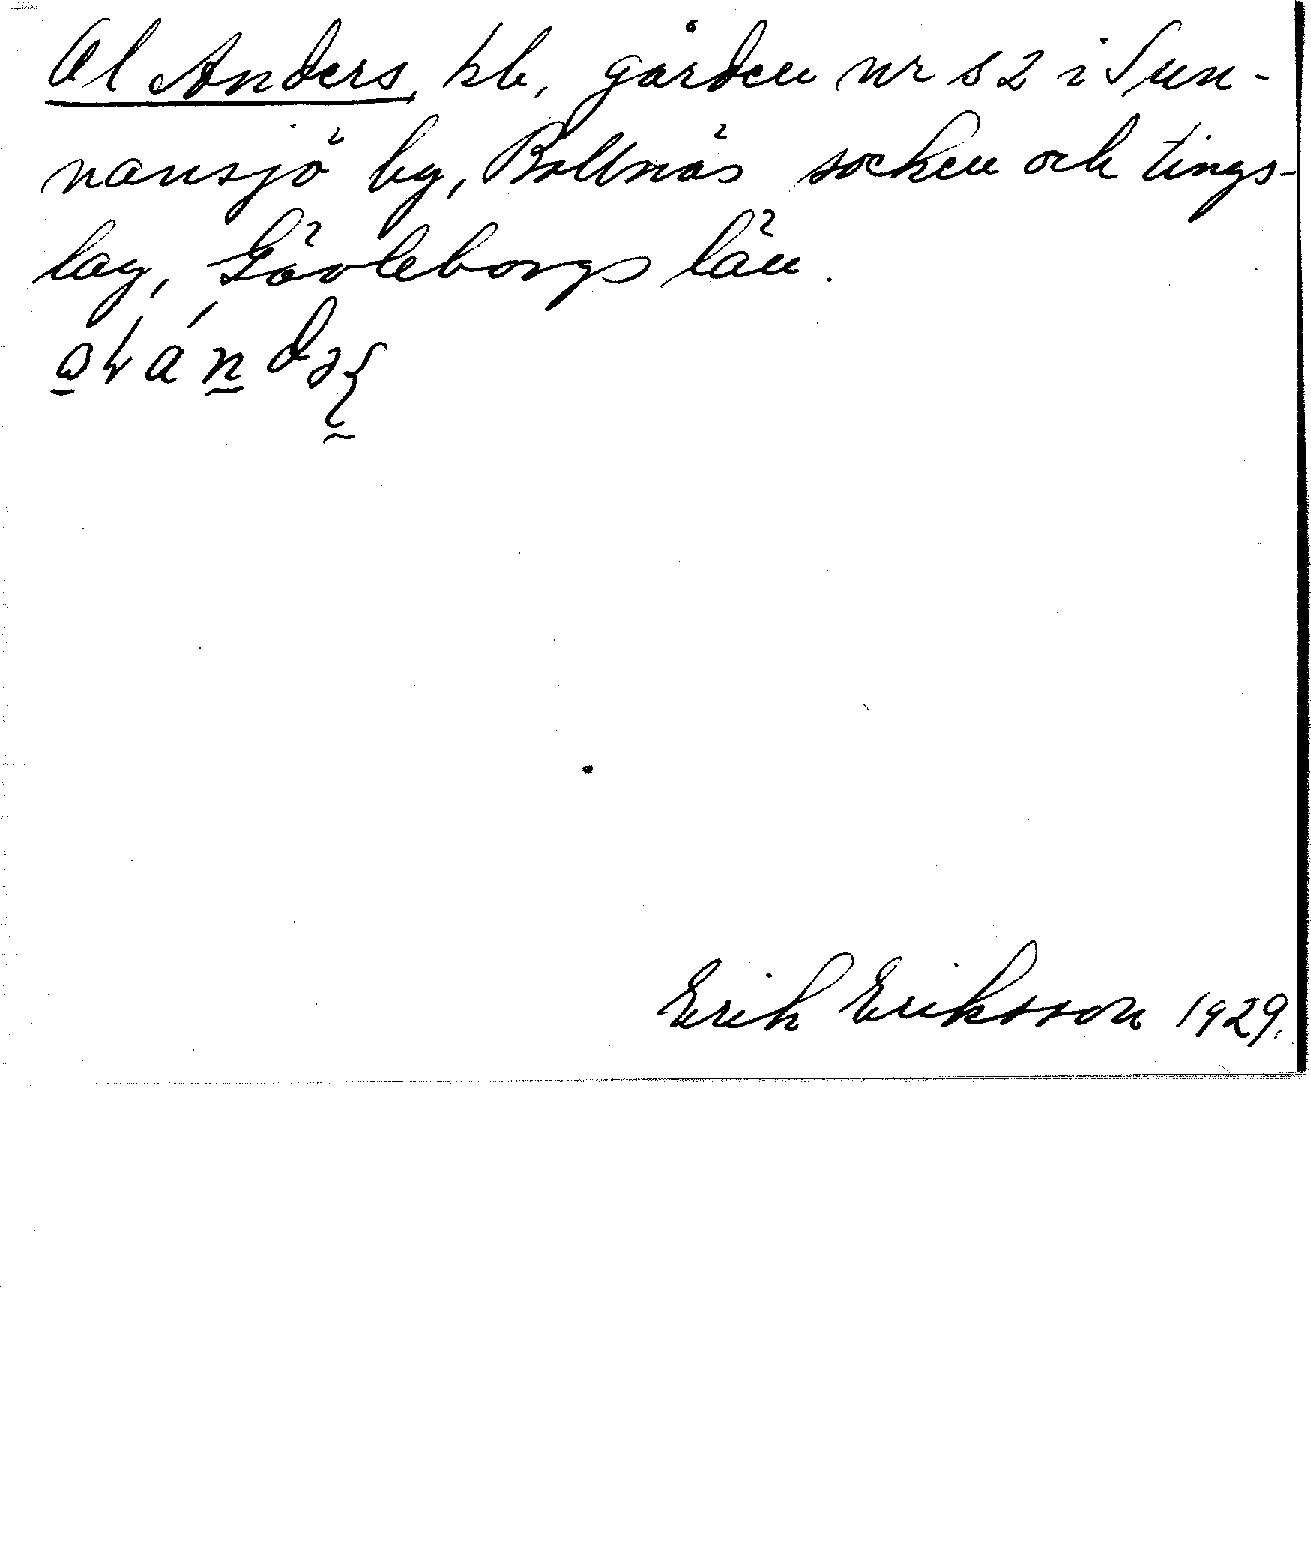 Ol Anders, kb, gården nr 82 i Sun-
nansjö by, Bollnäs socken och tings-
lag, Gävleborgs län.
Erik Eriksson 1929.